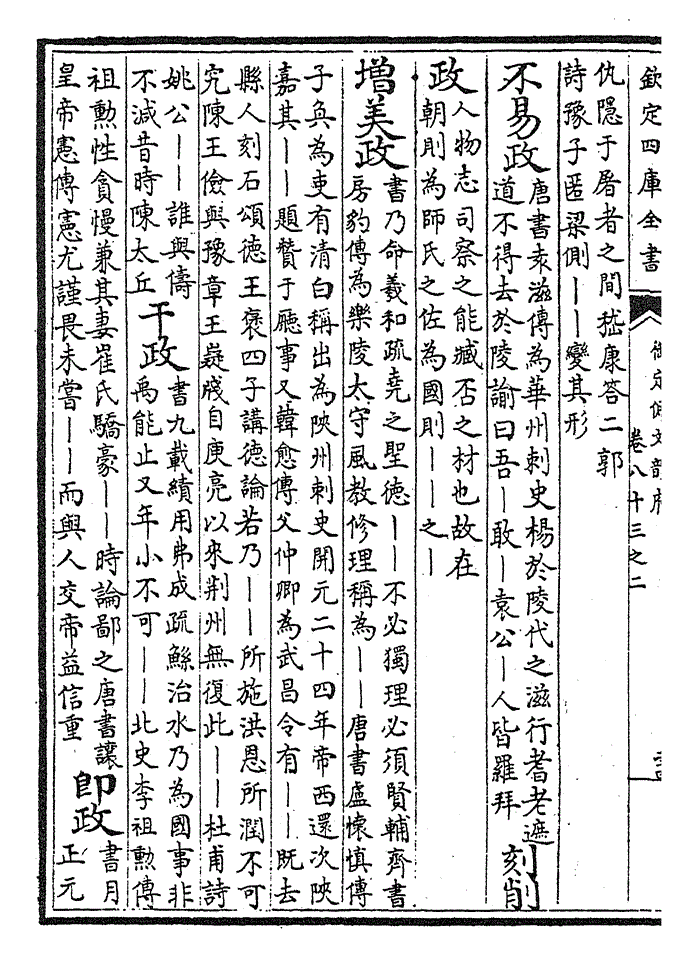 欽定四庫全書
御定佩文韻府 卷八十三之二
仇隱于屠者之間嵇康答二郭
詩豫子匿梁側——變其形
不易政
唐書袁滋傳為華州刺史楊於陵代之滋行耆老遮
道不得去於陵諭曰吾—敢—袁公—人皆羅拜
刻削
政
人物志司察之能臧否之材也故在
朝則為師氏之佐為國則——之—
増美政
書乃命羲和疏堯之聖德——不必獨理必須賢輔齊書
房豹傳為樂陵太守風教修理稱為——唐書盧懷慎傳
子奐為吏有清白稱出為陜州刺史開元二十四年帝西還次陜
嘉其——題贊于廳事又韓愈傳父仲卿為武昌令有——既去
縣人刻石頌德王褒四子講德論若乃——所施洪恩所潤不可
究陳王儉與豫章王嶷牋自庾亮以來荆州無復此——杜甫詩
姚公——誰與儔
不減昔時陳太丘
干政
書九載績用弗成疏鯀治水乃為國事非
禹能止又年小不可——北史李祖勲傳
祖勲性貪慢兼其妻崔氏驕豪——時論鄙之唐書讓
皇帝憲傳憲尤謹畏未嘗——而與人交帝益信重
即政
書月
正元